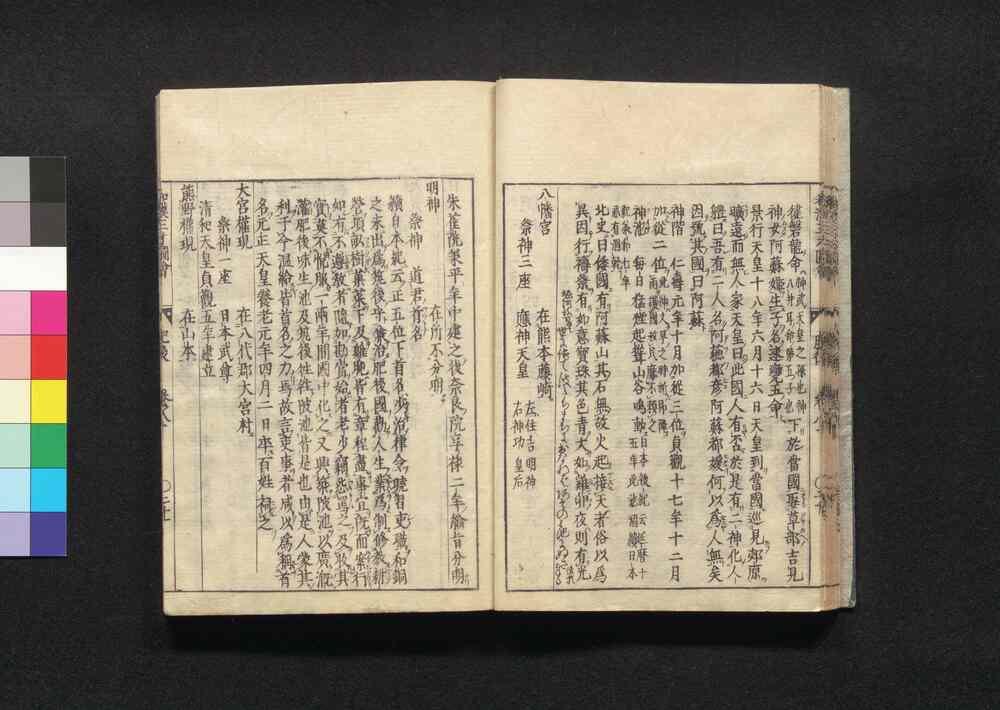 健磐龍命 神武天皇之孫也神八井耳命第五子也 下於當國娶草部吉見
神女阿蘇媛生子名速瓶玉命
景行天皇十八年六月十六日天皇到當國巡見郊原
曠遠而無人家天皇曰此國人有否於是有二神化人
體曰吾有二人名阿蘇都彦阿蘇都媛何以為人無矣
因號其國曰阿蘇
神階 仁壽元年十月加從三位貞觀十七年十二月
加從二位
神池 每日在煙起聲山谷鳴動
北史曰倭國有阿蘇山其石無故火起接天者俗以爲
異因行禱祭有如意寶珠其色青大如雞卵夜則有光
八幡宮 在熊本藤崎
祭神三座 應神天皇 左住吉明神 右神功皇后
朱雀院承平年中建之後奈良院享禄二年綸旨分明
明神 在所不分明
祭神 道君首名
續日本紀云正五位下首名少治律令曉習吏職和銅
之末出爲筑後守兼治肥後國勸人生業爲制條教耕
營頃畝樹菓菜下及雞肫皆有章程曲盡事宜既而案行
如有不遵教者隨加勘當始者老少竊怨罵之及收其
實莫不悅服一兩年間國中化之又興築陂池以廣漑
灌肥後味生池及筑後往往陂池皆是也由是人蒙其
利于今温給皆首名之力焉故言吏事者咸以爲稱首
名元正天皇養老元年四月二日卒百姓祠之
大宮權現 在八代郡大宮村
祭神一座 日本武尊
清和天皇貞觀五年建立
熊野權現 在山本
和漢三才圖會 肥後